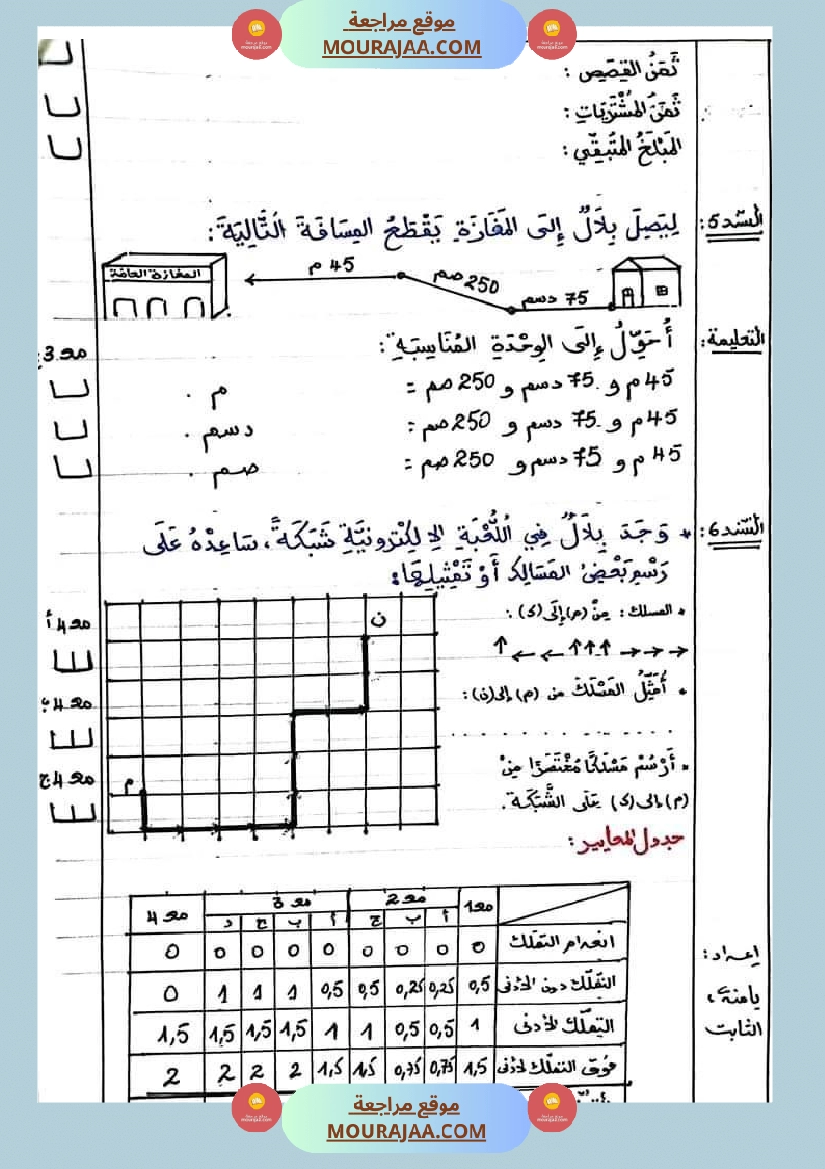 موقع مراجعة
MOURAJAA.COM
ثَمَنُ القِصَصِ :
ثَمَنُ المُشْتَرَيَاتِ :
المَبْلَغُ المُتَبَقِّي :
السّند5: لِيَصِلَ بِلَالٌ إِلَى المَغَازَةِ يَقْطَعُ المِسَافَةَ التَّالِيَةَ :
المغازة العامّة
45 م
250 صم
75 دسم
التعليمة: أُحَوِّلُ إِلَى الوِحْدَةِ المُنَاسِبَةِ :
مع3
45 م و 75 دسم و 250 صم = م .
45 م و 75 دسم و 250 صم = دسم .
45 م و 75 دسم و 250 صم = صم .
السّند6: * وَجَدَ بِلَالٌ فِي اللُّعْبَةِ الإِلِكْترُونِيَّةِ شَبَكَةً، سَاعِدْهُ عَلَى
رَسْمِ بَعْضِ المَسَالِكِ أَوْ تَمْثِيلِهَا:
مع4 أ
• المسلك : مِنْ (م) إِلَى (ك) :
→ → → ↑ ↑ ↑ ← ← ↑
مع4 ب
• أُمَثِّلُ المَسْلَكَ من (م) إلى (ن) :
. . . . . . . . . . . . . .
مع4 ج
• أَرْسُمُ مَسْلَكًا مُخْتَصَرًا مِنْ
(م) إلى (ك) عَلَى الشَّبَكَة.
ن
م
جدول المعايير :
مع1 مع2 مع3 مع4
أ ب ج أ ب ج د
انعدام التملك 0 0 0 0 0 0 0 0 0
التملّك دون الأدنى 0,5 0,25 0,25 0,5 0,5 1 1 1 0
التملّك الأدنى 1 0,5 0,5 1 1 1,5 1,5 1,5 1,5
فوق التملّك الأدنى 1,5 0,75 0,75 1,5 1,5 2 2 2 2
إعداد :
يامنة
الثابت
موقع مراجعة
MOURAJAA.COM